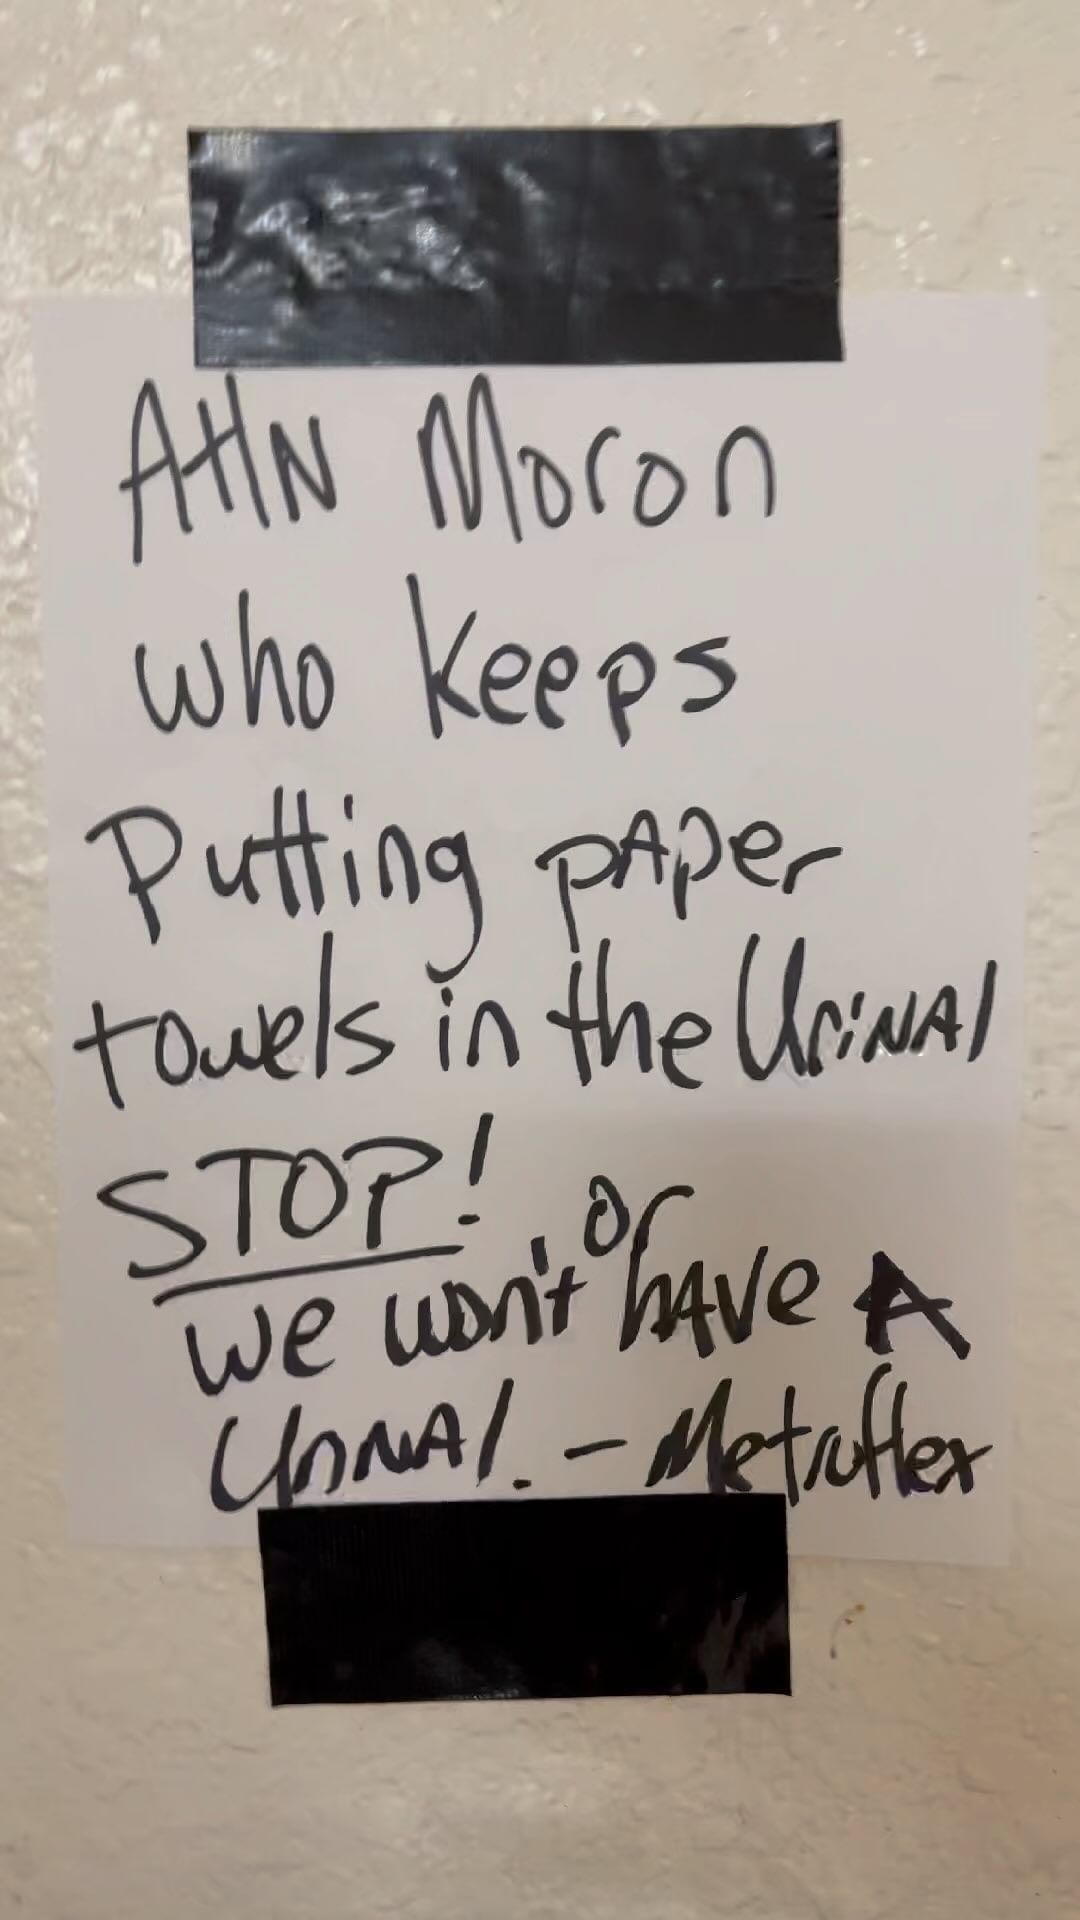 Attn Moron
who keeps
Putting pAper
towels in the UriNAl
STOP! or
we won't hAVe A
UriNAl. - Metroflex